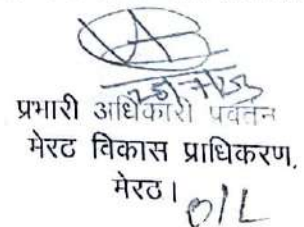 25/7/23
प्रभारी अधिकारी प्रवर्तन
मेरठ विकास प्राधिकरण,
मेरठ।